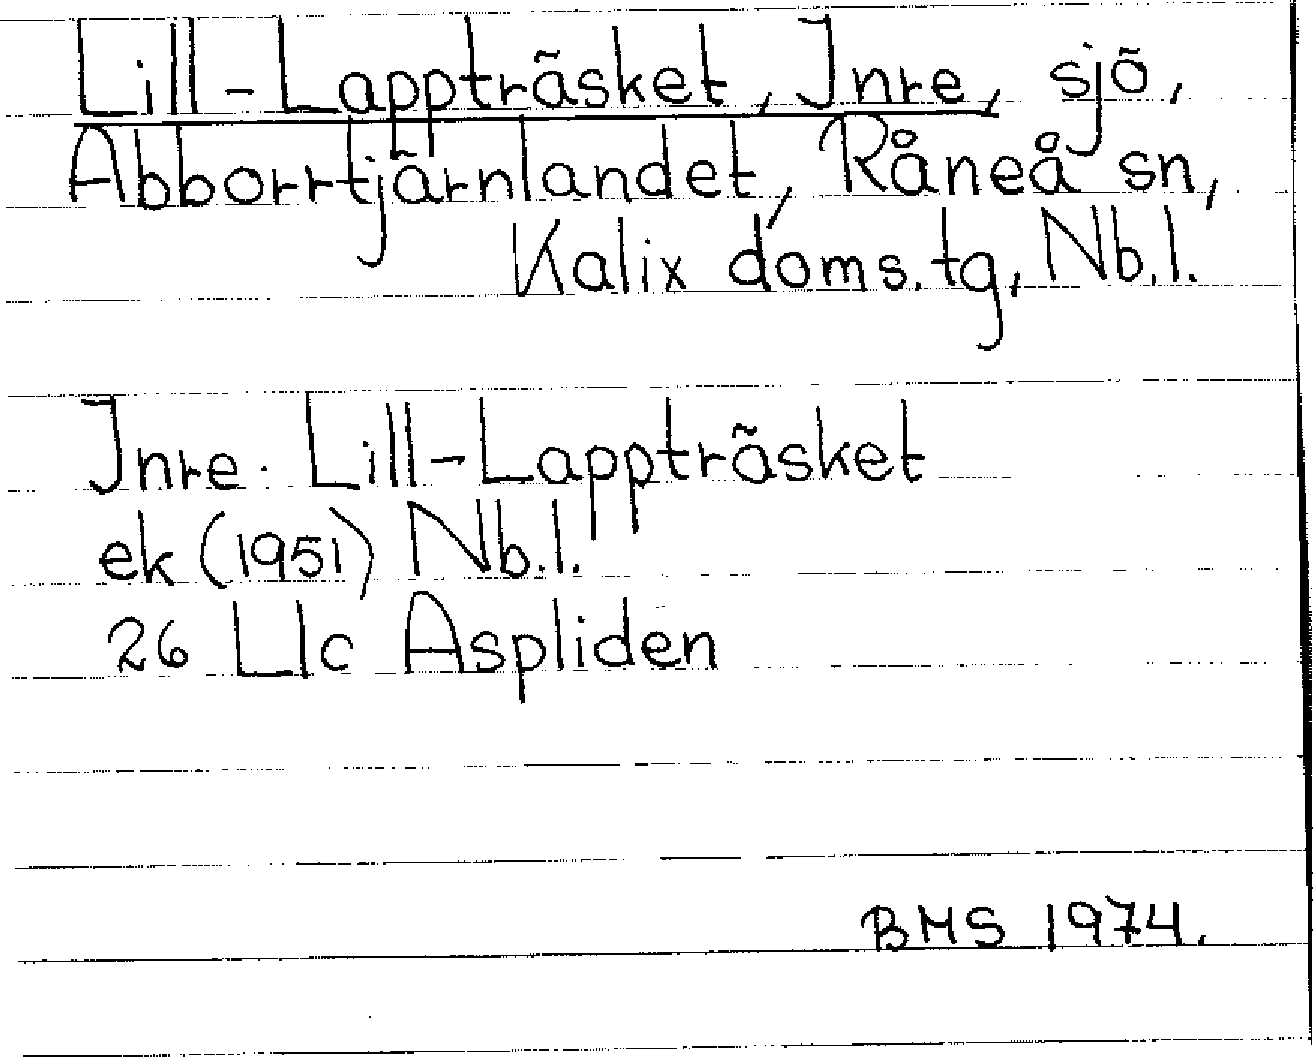 Lill-Lappträsket, Inre, sjö,
Abborrtjärnlandet, Råneå sn,
Kalix doms.tg, Nb.l.
Inre Lill-Lappträsket
ek (1951) Nb.l.
26 L1c Aspliden
BMS 1974.